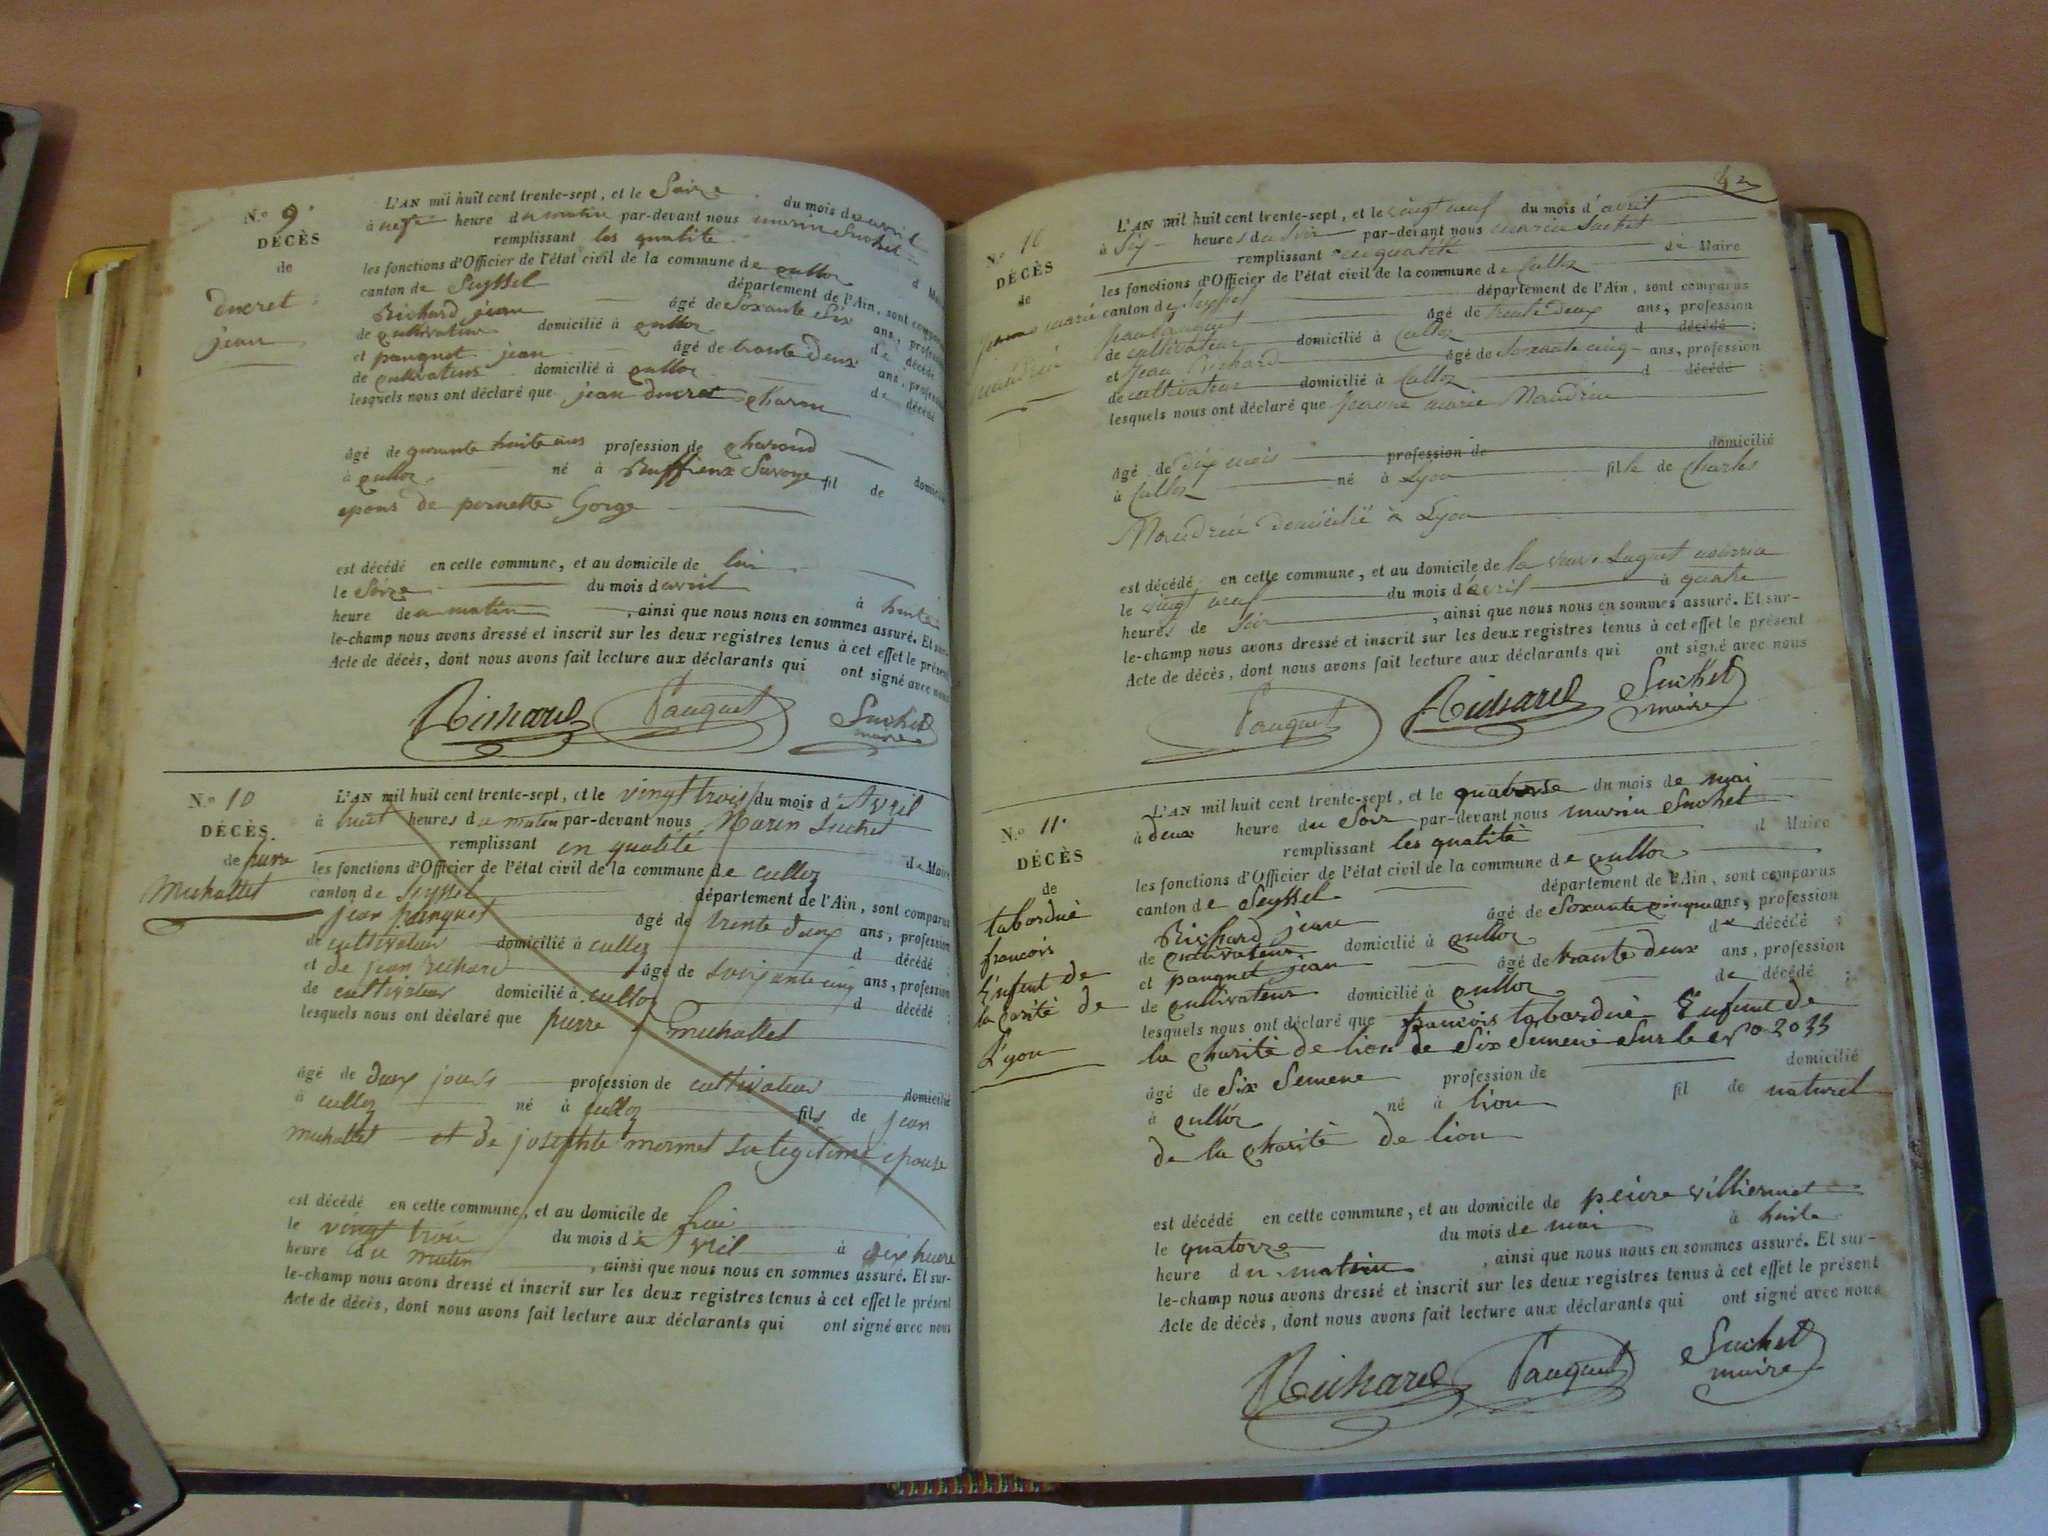 N.º 9.
DÉCÈS
de
ducret
jean
L'AN mil huit cent trente-sept, et le Seize du mois d'avril
à neff heure du matin par-devant nous marin Suchet
remplissant les qualité d Maire
les fonctions d'Officier de l'état civil de la commune de culloz
canton de Seyssel département de l'Ain, sont comparus
Richard jean âgé de Soxante Six ans, profession
de cultivateur domicilié à culloz d décédé
et pauquet jean âgé de trante deux ans, profession
de cultivateur domicilié à culloz de décédé
lesquels nous ont déclaré que jean ducret charon
âgé de quarante huite ans profession de charond domicilié
à culloz né à Ruffieux Savoye fil de
epous de pernette Gorge
est décédé en cette commune, et au domicile de lui
le Seize du mois d'avril à huite
heure du matin, ainsi que nous nous en sommes assuré. Et sur-
le-champ nous avons dressé et inscrit sur les deux registres tenus à cet effet le présent
Acte de décès, dont nous avons fait lecture aux déclarants qui ont signé avec nous
Richard Pauquet Suchet
maire
N.º 10
DÉCÈS.
de pierre
Michallet
L'AN mil huit cent trente-sept, et le vingt trois du mois d'Avril
à huit heures du matin par-devant nous Marin Suchet
remplissant en qualité de Maire
les fonctions d'Officier de l'état civil de la commune de culloz
canton de Seyssel département de l'Ain, sont comparus
jean pauquet âgé de trente deux ans, profession
de cultivateur domicilié à culloz d décédé ;
et de jean richard âgé de soixante cinq ans, profession
de cultivateur domicilié à culloz d décédé ;
lesquels nous ont déclaré que pierre michallet
âgé de deux jours profession de cultivateur domicilié
à culloz né à culloz fils de jean
michallet et de josephte mermet sa legitime epouse
est décédé en cette commune, et au domicile de
le vingt trois du mois d'Avril à dix heure
heure du matin, ainsi que nous nous en sommes assuré. Et sur-
le-champ nous avons dressé et inscrit sur les deux registres tenus à cet effet le présent
Acte de décès, dont nous avons fait lecture aux déclarants qui ont signé avec nous
42
N.º 10
DÉCÈS
de
marie
L'AN mil huit cent trente-sept, et le vingt neuf du mois d'avril
à Six heures du Soir par-devant nous marin Suchet
remplissant en qualité de Maire
les fonctions d'Officier de l'état civil de la commune de Culloz
canton de Seyssel département de l'Ain, sont comparus
Jean Pauquet âgé de trente deux ans, profession
de cultivateur domicilié à Culloz d décédé ;
et Jean Richard âgé de Soixante cinq ans, profession
de cultivateur domicilié à Culloz d décédé ;
lesquels nous ont déclaré que marie Maudrin
âgé de dix mois profession de domicilié
à Culloz né à Lyon fille de Charles
Maudrin domicilié à Lyon
est décédé en cette commune, et au domicile de la veuve nourrice
le vingt neuf du mois d'avril à quatre
heures de Soir, ainsi que nous nous en sommes assuré. Et sur-
le-champ nous avons dressé et inscrit sur les deux registres tenus à cet effet le présent
Acte de décès, dont nous avons fait lecture aux déclarants qui ont signé avec nous
Pauquet Richard Suchet
maire
N.º 11.
DÉCÈS
de
tabordué
francois
Enfent de
la carité de
Lyon
L'AN mil huit cent trente-sept, et le quatorse du mois de mai
à deux heure du Soir par-devant nous marin Suchet
remplissant les qualité d Maire
les fonctions d'Officier de l'état civil de la commune de culloz
canton de Seyssel département de l'Ain, sont comparus
Richard jean âgé de Soxante cinque ans, profession
de cultivateur domicilié à culloz de décédé ;
et pauquet jean âgé de trante deux ans, profession
de cultivateur domicilié à culloz de décédé ;
lesquels nous ont déclaré que francois tabordué Enfent de
la charité de lion de Six Semene Sur le nº 2033
âgé de Six Semene profession de domicilié
à culloz né à lion fil de naturel
de la charité de lion
est décédé en cette commune, et au domicile de peirre villiermet
le quatorze du mois de mai à huite
heure du matin, ainsi que nous nous en sommes assuré. Et sur-
le-champ nous avons dressé et inscrit sur les deux registres tenus à cet effet le présent
Acte de décès, dont nous avons fait lecture aux déclarants qui ont signé avec nous
Richard Pauquet Suchet
maire